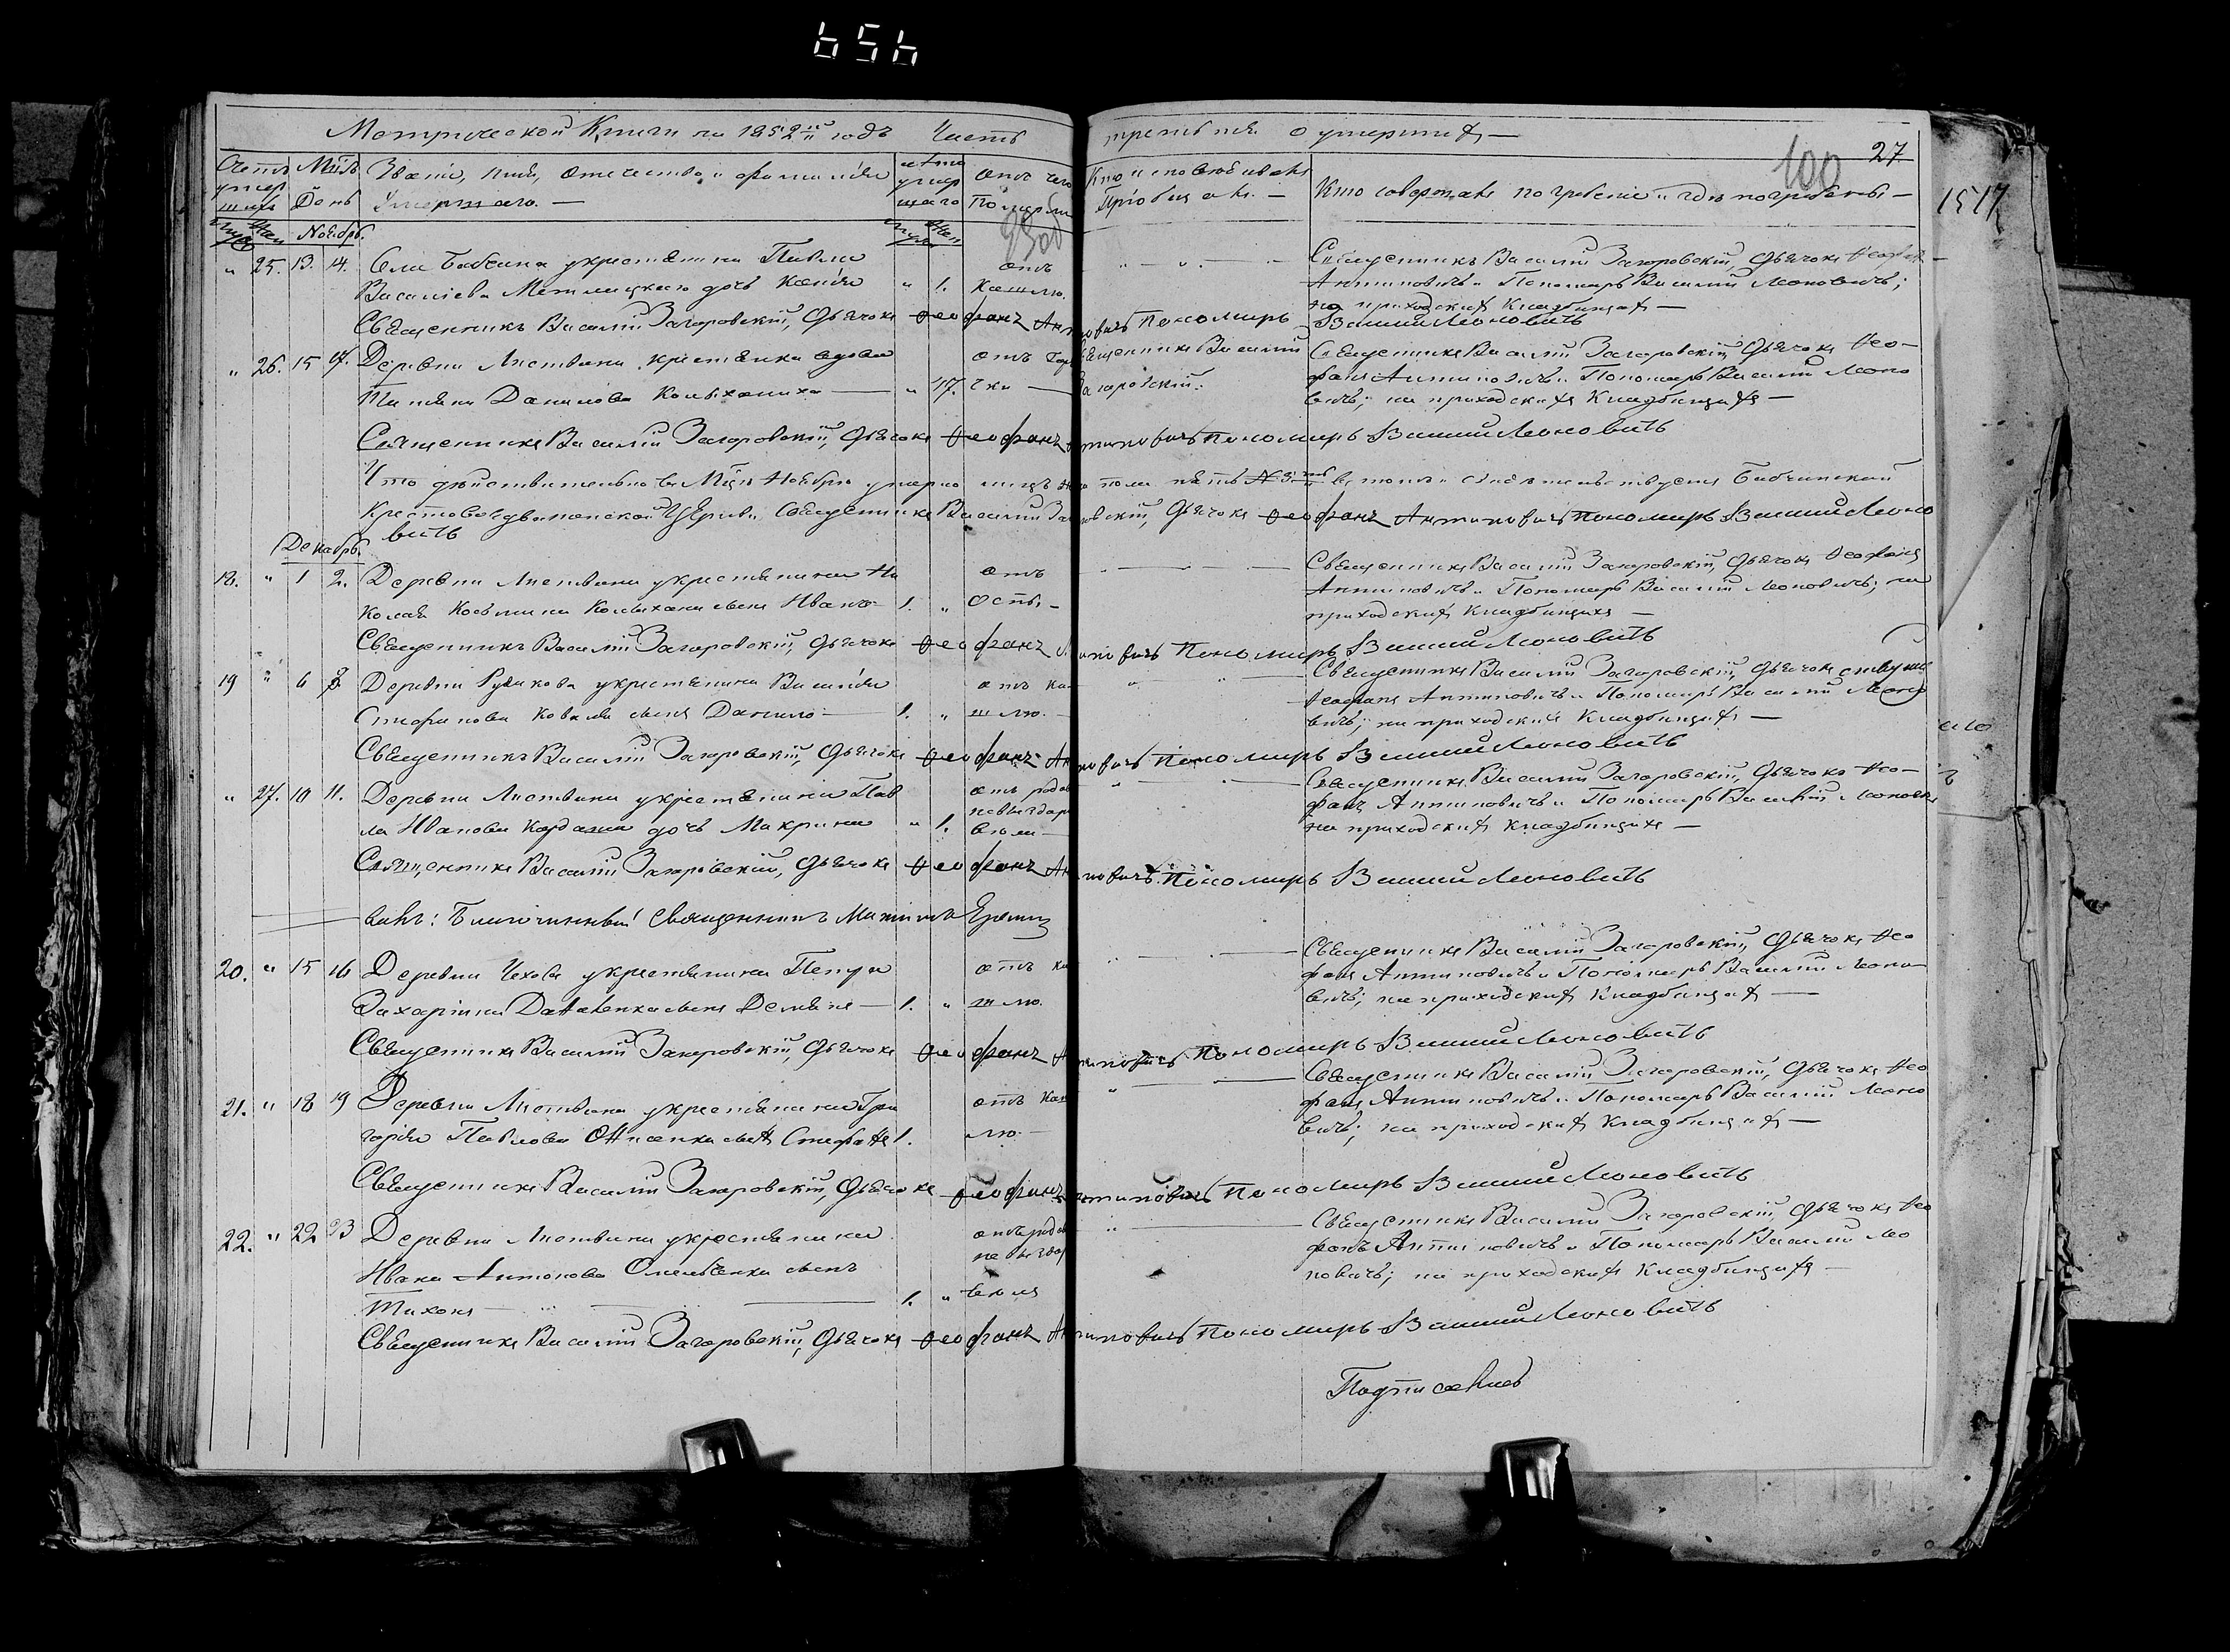 656
Метрической Книги на 1852й годъ Часть третья о умершихъ
100 27
1517
Счетъ умершихъ
Мцъ День
Званіе, имя, отечество и фамилія Умершаго.
лѣта умершаго
отъ чего Померли
Кто исповѣдывалъ и Пріобщалъ.
Кто совершалъ погребеніе и гдѣ погребены
Ноябрь.
" 25. 13. 14. Села Бабчина у крестьянина Павла
Василіева дочь
" 1. отъ кашлю.
Священникъ Василій Загоровскій, Дьячокъ Ѳеофанъ
Антиповичъ и Пономарь Василій Моновичъ;
на приходскихъ Кладбищахъ
Священникъ Василій Загоровскій, Дьячокъ Ѳеофанъ Антиповичъ Пономирь Василий Моновичь
" 26. 15 17. Деревни Листвина крестьянка вдова
Татіяна Данилова Колыханиха " 47.
отъ горячки
Священникъ Василий Загоровскій.
Священникъ Василій Загоровскій, Дьячокъ Ѳеофанъ Антиповичъ и Пономарь Василій Моновичъ; на приходскихъ Кладбищахъ
Священникъ Василій Загоровскій, Дьячокъ Ѳеофанъ Антиповичъ Пономирь Василий Моновичь
Что дѣйствительно въ Мцѣ Ноябрѣ умерло пола пять № 5 въ томъ и свидѣтельствуемъ Бабчинской
Крестовоздвиженской Церкви Священникъ Василій Загоровскій, Дьячокъ Ѳеофанъ Антиповичъ Пономирь Василий Моновичь
Декабрь.
18. " 1 2. Деревни Листвина у крестьянина Николая Козьмина Колыхана сынъ Иванъ 1. "
отъ оспы
Священникъ Василій Загоровскій, Дьячокъ Ѳеофанъ
Антиповичъ и Пономарь Василій Моновичъ; на
приходскихъ Кладбищахъ
Священникъ Василій Загоровскій, Дьячокъ Ѳеофанъ Антиповичъ Пономирь Василий Моновичь
19 " 6 Деревни Рудакова у крестьянина Василія
Стефанова Коваля сынъ Данило 1. "
отъ кашлю.
Священникъ Василій Загоровскій, Дьячокъ
Ѳеофанъ Антиповичъ и Пономарь Василій Моновичъ; на приходскихъ Кладбищахъ
Священникъ Василій Загоровскій, Дьячокъ Ѳеофанъ Антиповичъ Пономирь Василий Моновичь
" 27. 10 11. Деревни Листвина у крестьянина Павла Иванова дочь Макрина " 1.
Священникъ Василій Загоровскій, Дьячокъ Ѳеофанъ Антиповичъ и Пономарь Василій Моновичъ
на приходскихъ Кладбищахъ
Священникъ Василій Загоровскій, Дьячокъ Ѳеофанъ Антиповичъ Пономирь Василий Моновичь
Благочинный Священникъ
20. " 15 16 Деревни Чехова у крестьянина Петра
Захаріина сынъ Деміянъ 1. "
отъ кашлю.
Священникъ Василій Загоровскій, Дьячокъ Ѳеофанъ Антиповичъ и Пономарь Василій Моновичъ; на приходскихъ Кладбищахъ
Священникъ Василій Загоровскій, Дьячокъ Ѳеофанъ Антиповичъ Пономирь Василий Моновичь
21. " 18 19 Деревни Листвина у крестьянина Григорія Павлова сынъ Стефанъ 1.
отъ кашлю.
Священникъ Василій Загоровскій, Дьячокъ Ѳеофанъ Антиповичъ и Пономарь Василій Моновичъ; на приходскихъ Кладбищахъ
Священникъ Василій Загоровскій, Дьячокъ Ѳеофанъ Антиповичъ Пономирь Василий Моновичь
22. " 22 23 Деревни Листвина у крестьянина
Ивана Антонова сынъ
Тихонъ 1. "
Священникъ Василій Загоровскій, Дьячокъ Ѳеофанъ Антиповичъ и Пономарь Василій Моновичъ; на приходскихъ Кладбищахъ
Священникъ Василій Загоровскій, Дьячокъ Ѳеофанъ Антиповичъ Пономирь Василий Моновичь